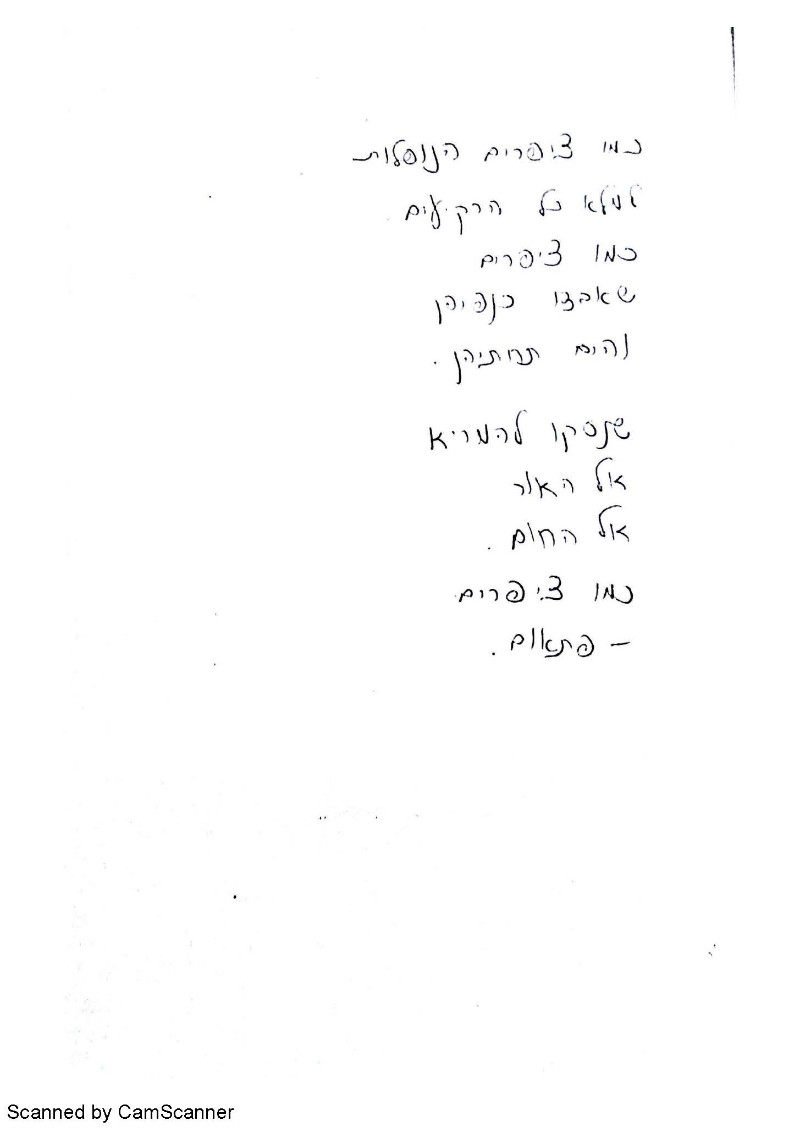 כמו ציפרים הנופלות
למלא כל הרקיעים.
כמו ציפרים
שאבדו כנפיהן
והים תחתיהן.
שנסקו להמריא
אל האור
אל החום.
כמו ציפרים
– פתאום.
Scanned by CamScanner